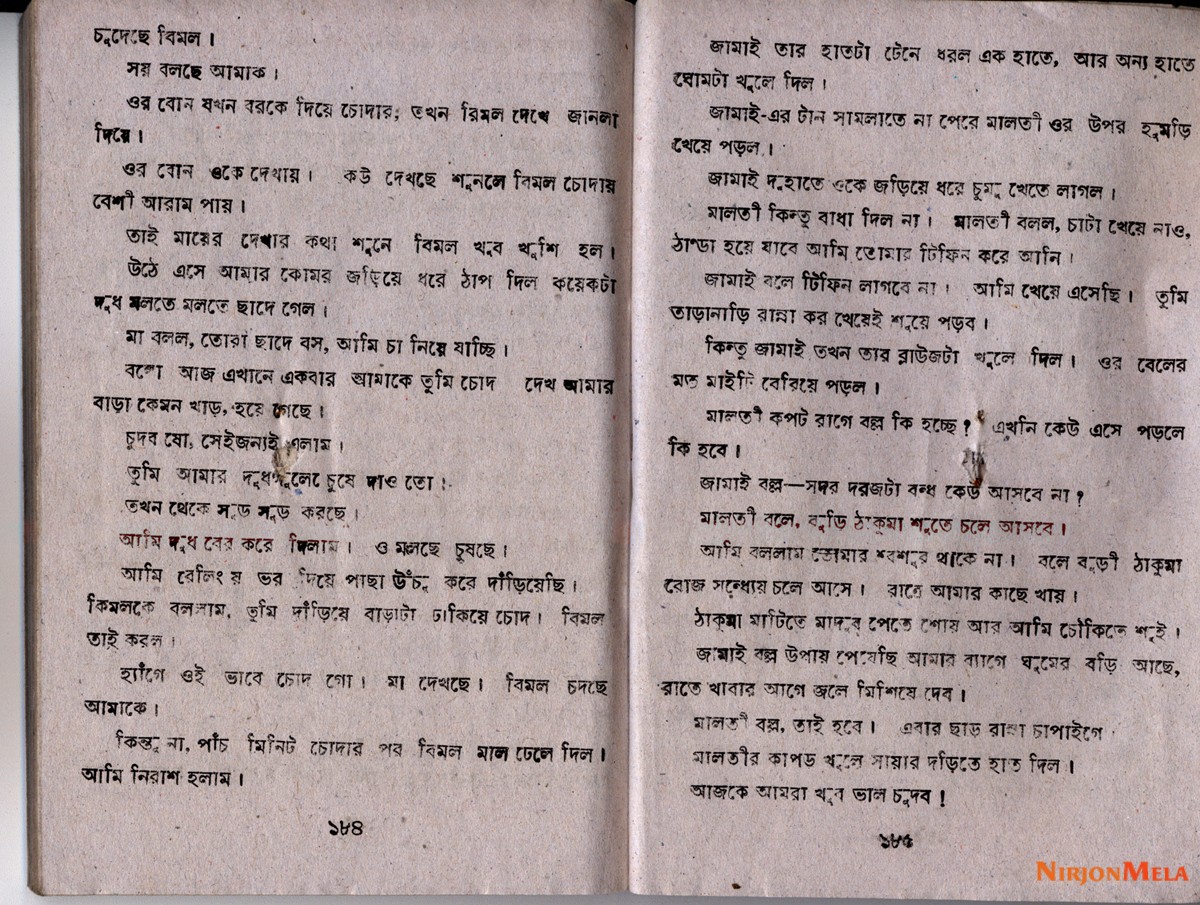 চুদেছে বিমল।
সয় বলছে আমাক।
ওর বোন যখন বরকে দিয়ে চোদার, তখন বিমল দেখে জানলা
দিয়ে।
ওর বোন ওকে দেখায়। কউ দেখছে শুনলে বিমল চোদায়
বেশী আরাম পায়।
তাই মায়ের দেখার কথা শুনে বিমল খুব খুশি হল।
উঠে এসে আমার কোমর জড়িয়ে ধরে ঠাপ দিল কয়েকটা
দুধ মলতে মলতে ছাদে গেল।
মা বলল, তোরা ছাদে বস, আমি চা নিয়ে যাচ্ছি।
বলো আজ এখানে একবার আমাকে তুমি চোদ দেখ আমার
বাড়া কেমন খাড়, হয়ে গেছে।
চুদব যো, সেইজন্যই এলাম।
তুমি আমার দুধগুলো চুষে দাও তো।
তখন থেকে সুড় সুড় করছে।
আমি দুধ বের করে দিলাম। ও মলছে চুষছে।
আমি রেলিং য় ভর দিয়ে পাছা উঁচু করে দাঁড়িয়েছি।
কিমলকে বললাম, তুমি দাঁড়িয়ে বাড়াটা ঢাকিয়ে চোদ। বিমল
তাই করল।
হ্যাঁগে ওই ভাবে চোদ গো। মা দেখছে। বিমল চদছে
আমাকে।
কিন্তু না, পাঁচ মিনিট চোদার পর বিমল মাল ঢেলে দিল।
আমি নিরাশ হলাম।
১৮৪
জামাই তার হাতটা টেনে ধরল এক হাতে, আর অন্য হাতে
ঘোমটা খুলে দিল।
জামাই-এর টান সামলাতে না পেরে মালতী ওর উপর হুমড়ি
খেয়ে পড়ল।
জামাই দুহাতে ওকে জড়িয়ে ধরে চুমু খেতে লাগল।
মালতী কিন্তু বাধা দিল না। মালতী বলল, চাটা খেয়ে নাও,
ঠাণ্ডা হয়ে যাবে আমি তোমার টিফিন করে আনি।
জামাই বলে টিফিন লাগবে না। আমি খেয়ে এসেছি। তুমি
তাড়ানাড়ি রান্না কর খেয়েই শুয়ে পড়ব।
কিন্তু জামাই তখন তার ব্লাউজটা খুলে দিল। ওর বেলের
মত মাইটি বেরিয়ে পড়ল।
মালতী কপট রাগে বল্ল কি হচ্ছে? এখনি কেউ এসে পড়লে
কি হবে।
জামাই বল্ল—সদর দরজটা বন্ধ কেউ আসবে না?
মালতী বলে, বুড়ি ঠাকুমা শুতে চলে আসবে।
আমি বললাম তোমার শ্বশুর থাকে না। বলে বুড়ী ঠাকুমা
রোজ সন্ধ্যেয় চলে আসে। রাতে আমার কাছে খায়।
ঠাকুমা মাটিতে মাদুর পেতে শোয় আর আমি চৌকিতে শুই।
জামাই বল্ল উপায় পেয়েছি আমার ব্যাগে ঘুমের বড়ি আছে,
রাতে খাবার আগে জলে মিশিয়ে দেব।
মালতী বল্ল, তাই হবে। এবার ছাড় রান্না চাপাইগে
মালতীর কাপড় খুলে সায়ার দড়িতে হাত দিল।
আজকে আমরা খুব ভাল চুদব!
১৮৫
NIRJONMELA